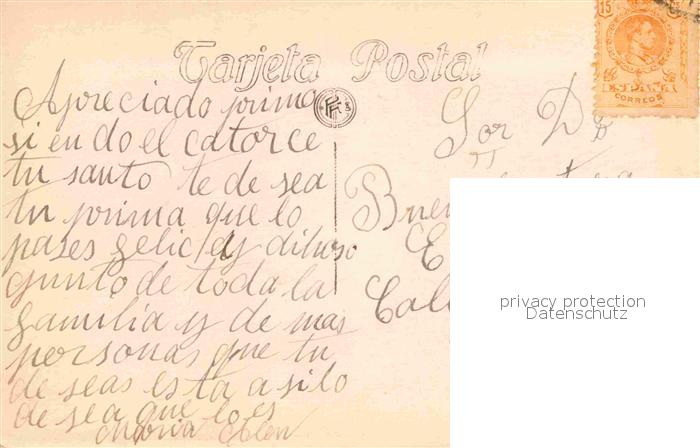 Tarjeta Postal
15
ESPAÑA
CORREOS
Apreciado prima
si en do el catorce
tu santo te de sea
tu prima que lo
pases felic/d y dihoso
gunto de toda la
familia y de mas
personas que tu
de seas esta a silo
de sea que lo es
Maria
Sor Dn
Buen
E
Cal
privacy protection
Datenschutz